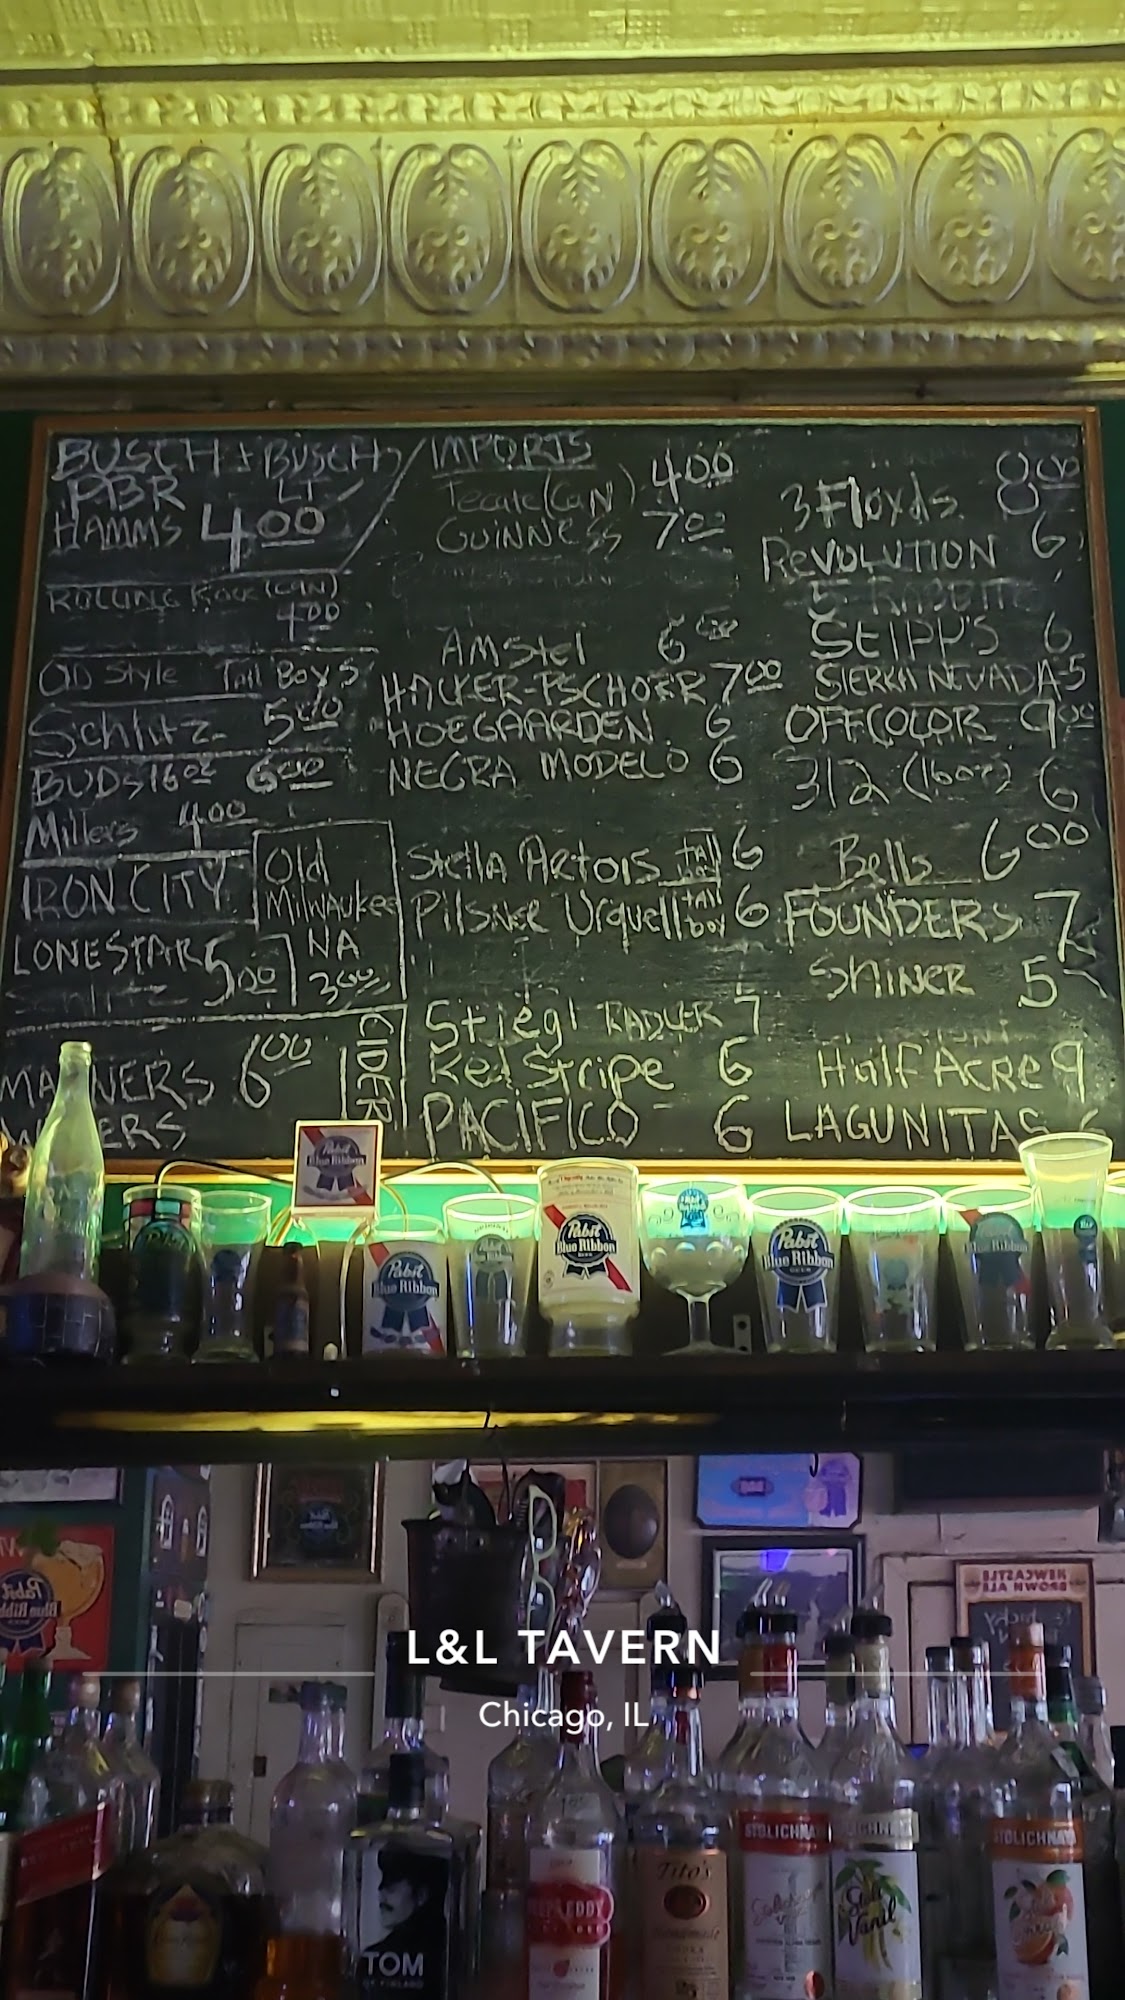 BUSCH + BUSCH
LT
PBR
HAMMS 4.00
ROLLING ROCK (CAN)
4.00
OLD Style Tall Boys
Schlitz 5.00
BUDS 16oz 6.00
Millers 4.00
IRON CITY
LONESTAR 5.00
Old
Milwaukee
NA
3.00
6.00
CIDER
IMPORTS
Tecate (CAN) 4.00
GUINNESS 7.00
AMStel 6.00
HACKER-PSCHORR 7.00
HOEGAARDEN 6
NEGRA MODELO 6
Stella Artois tall boy 6
Pilsner Urquell tall boy 6
Stiegl RADLER 7
Red Stripe 6
PACIFICO 6
3 Floyds 8.00
REVOLUTION 6
SEIPP'S 6
SIERRA NEVADA 5
OFFCOLOR 9.00
312 (16oz) 6
Bells 6.00
FOUNDERS 7
SHINER 5
Half Acre 9
LAGUNITAS 6
Pabst
Blue Ribbon
Pabst
Blue Ribbon
Pabst
Blue Ribbon
Pabst
Blue Ribbon
BEER
Blue Ribbon
Pabst
NEWCASTLE
BROWN ALE
L&L TAVERN
Chicago, IL
TOM
OF FINLAND
Tito's
Handmade
VODKA
STOLICHNAYA
Stoli
Vanil
STOLICHNAYA